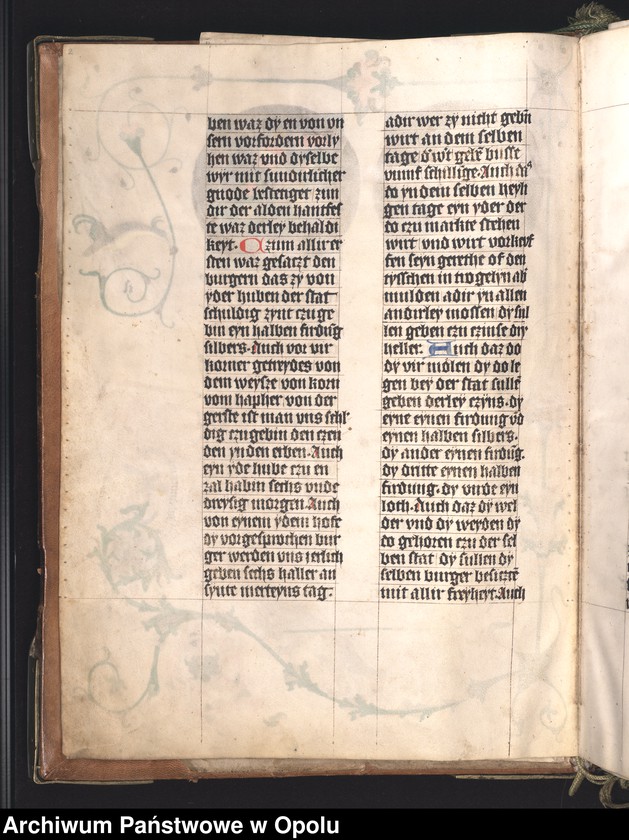 2
ben waz dy en von vn
sern vorfordern vorly
hen waz vnd dyselbe
wyr mit sundirlicher
gnode bestetiget zun
dir der alden hantfes
te waz derley behaldi
keyt. Czum allir er
sten waz gesatzt den
burgern das zy von
yder huben der stat
schuldig zynt czu ge
bin eyn halben firdūg
silbers. Auch vor vir
korner getreydes von
dem weysze von korn
vom hapher von der
gerste ist man vns schl
dig czu gebin den czen
den yn den erben. Auch
eyn yde hube czu en
zal habin sechs vnde
dreysig morgen. Auch
von eynem ydem hofe
dy vorgesprochen bur
ger werden vns ierlich
geben sechs haller an
synte merteyns tag.
adir wer zy nicht gebñ
wirt an dem selben
tage d' wt gebē busse
vumf schillige. Auch
do yn dem selben heyli
gen tage eyn yder der
do czu markte stehen
wirt vnd wirt vorkeyf
fen seyn gerethe of den
tysschen in tvogelyn ab
mulden adir yn allen
andirley mossen dy sul
len geben czu czinse dry
heller. Auch daz do
dy vir molen dy do le
gen bey der stat sullē
geben derley czyns. dy
eyne eynen firdung vō
eynen halben silbers.
dy ander eynen firdūg.
dy dritte eynen halben
firdung. dy virde eyn
loth. Auch daz dy wel
der vnd dy weyden dy
do gehoren czu der sel
ben stat dy sullen dy
selben burger besitzē
mit allir freyheyt. Auch
Archiwum Państwowe w Opolu